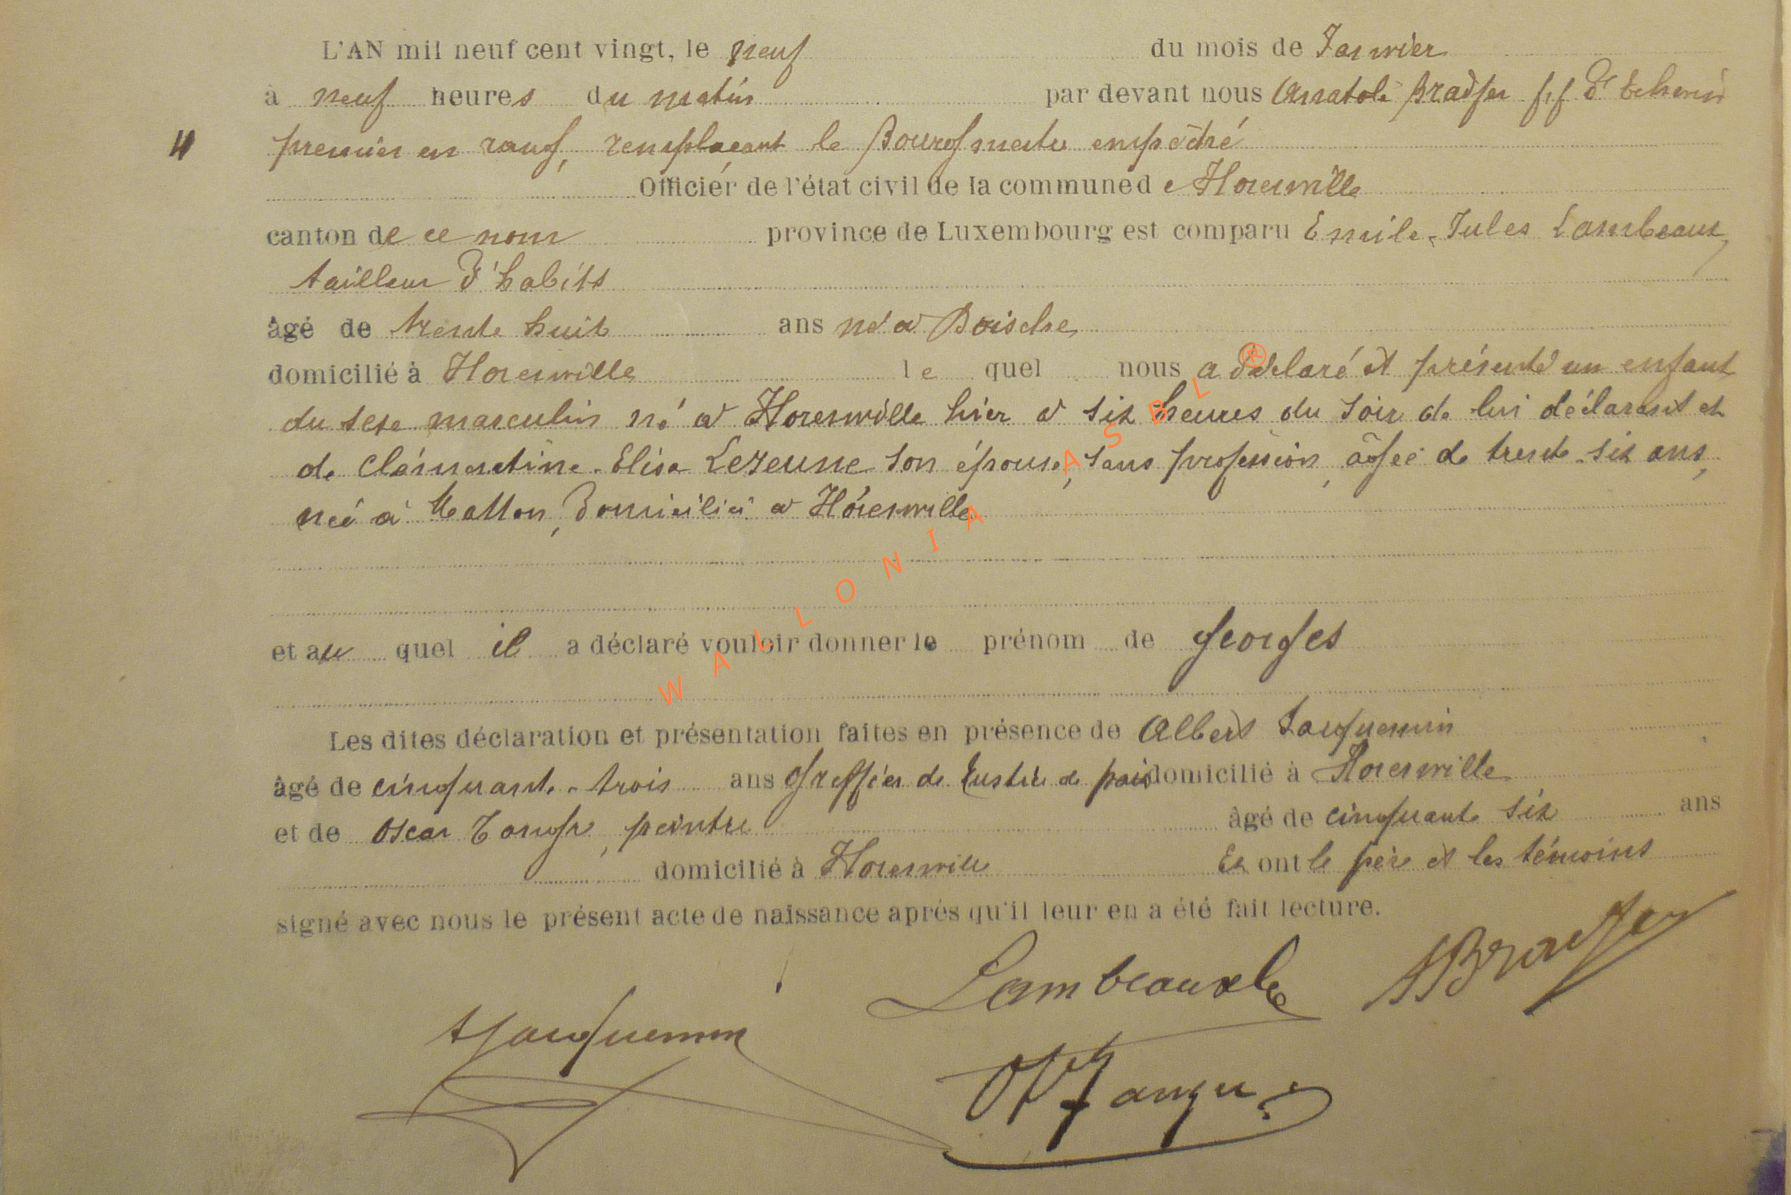 L'AN mil neuf cent vingt, le neuf du mois de Janvier
à neuf heures du matin par devant nous Anatole Bradfer f.f. d'Echevin
4 premier en rang, remplaçant le Bourgmestre empêché
Officier de l'état civil de la commune de Florenville
canton de ce nom province de Luxembourg est comparu Emile-Jules Lambeaux,
tailleur d'habits
âgé de trente huit ans né à Doische
domicilié à Florenville le quel nous a déclaré et présenté un enfant
du sexe masculin né à Florenville hier à six heures du soir de lui déclarant et
de Clémentine-Elisa Lejeune son épouse, sans profession, âgée de trente-six ans,
née à Matton, domiciliée à Florenville
et au quel il a déclaré vouloir donner le prénom de Georges
Les dites déclaration et présentation faites en présence de Albert Jacquemin
âgé de cinquante-trois ans greffier de Justice de paix domicilié à Florenville
et de Oscar, peintre âgé de cinquante six ans
domicilié à Florenville Et ont le père et les témoins
signé avec nous le présent acte de naissance après qu'il leur en a été fait lecture.
Lambeaux ABradfer
AJacquemin
WALLONIA ASBL ®